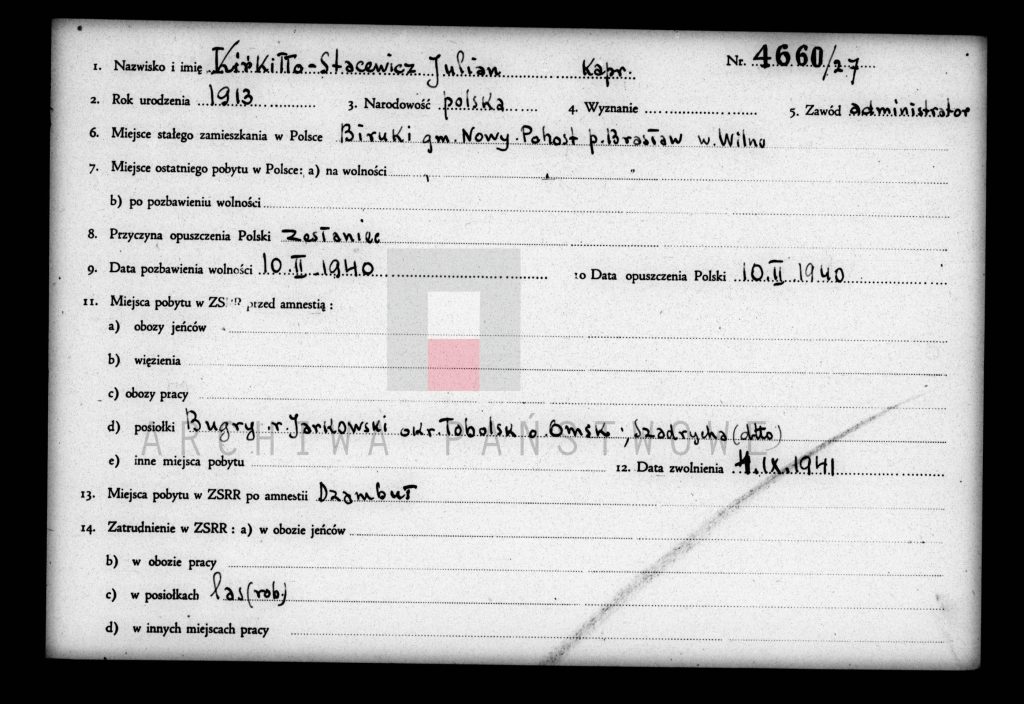 1. Nazwisko i imię Kirkiłło-Stacewicz Julian Kapr. Nr. 4660/27
2. Rok urodzenia 1913 3. Narodowość polska 4. Wyznanie 5. Zawód administrator
6. Miejsce stałego zamieszkania w Polsce Biruki gm. Nowy-Pohost p. Brasław w. Wilno
7. Miejsce ostatniego pobytu w Polsce: a) na wolności " "
b) po pozbawieniu wolności
8. Przyczyna opuszczenia Polski zesłaniec
9. Data pozbawienia wolności 10.II.1940 10 Data opuszczenia Polski 10.II.1940
11. Miejsca pobytu w ZSRR przed amnestią:
a) obozy jeńców
b) więzienia
c) obozy pracy
d) posiołki Bugry r. Jarkowski okr. Tobolsk o. Omsk; Szadrycha (dtto)
ARCHIWA PAŃSTWOWE
e) inne miejsca pobytu 12. Data zwolnienia 4.IX.1941
13. Miejsca pobytu w ZSRR po amnestii Dżambuł
14. Zatrudnienie w ZSRR: a) w obozie jeńców
b) w obozie pracy
c) w posiołkach las (rob.)
d) w innych miejscach pracy